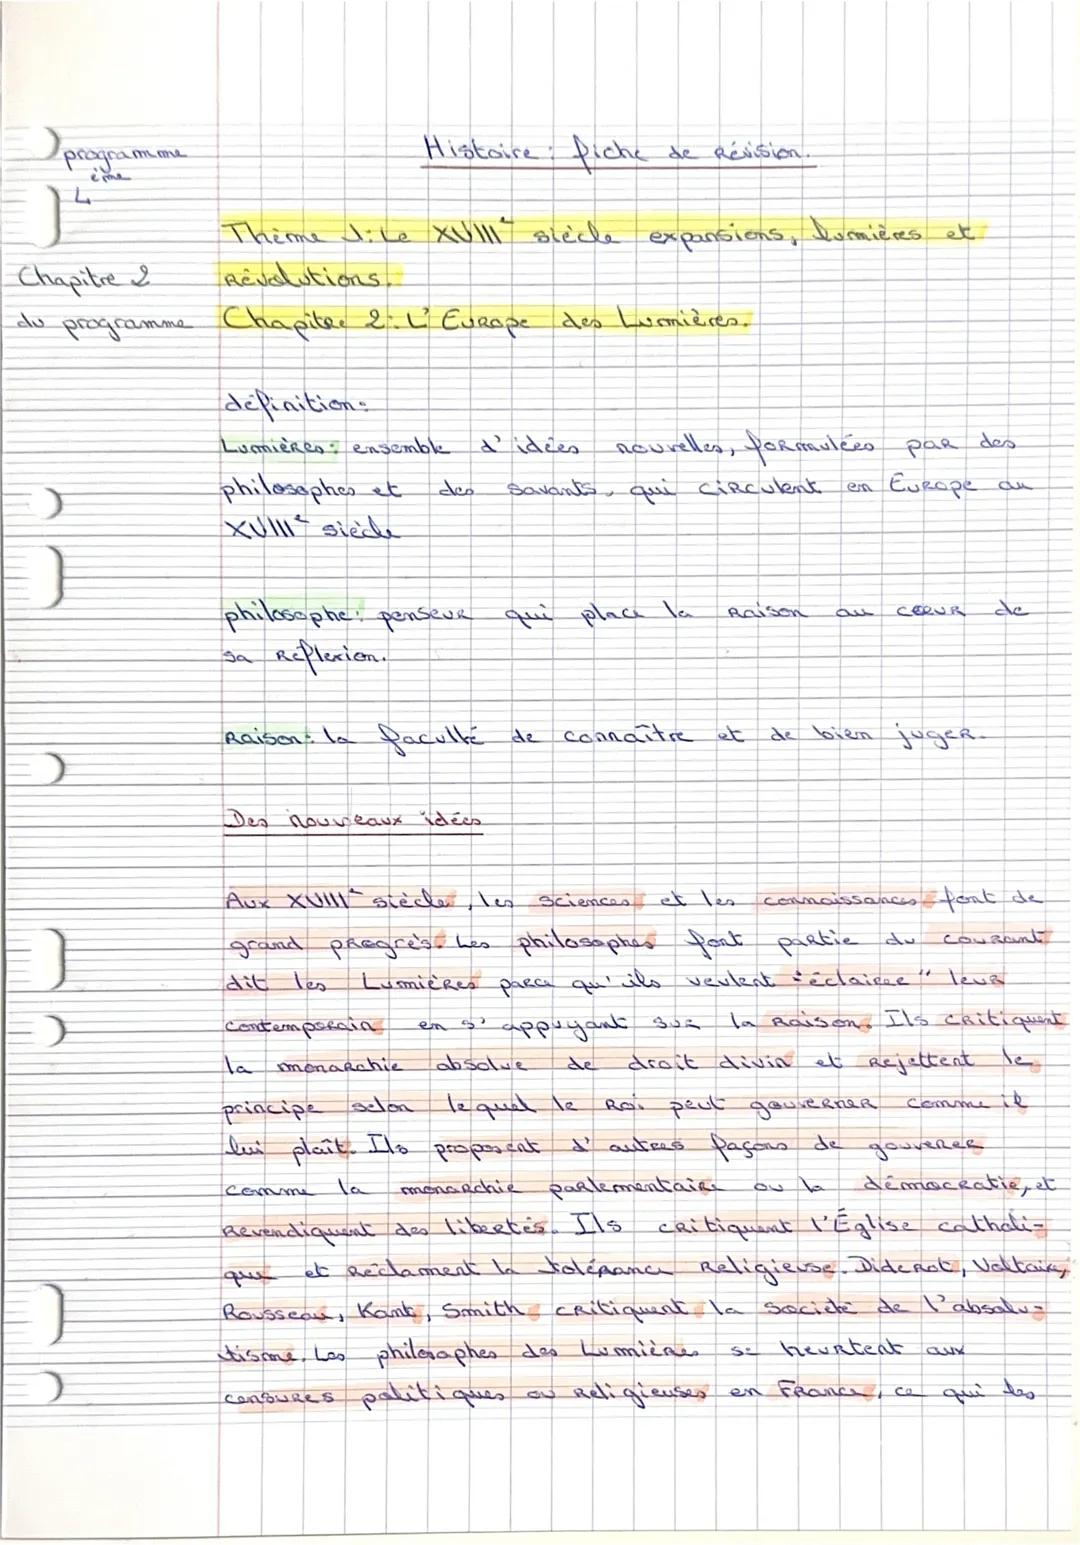 Histoire : fiche de Révision.
programme
4 ème
Thème 1: Le XVIIIe siècle expansions, lumières et
Révolutions.
Chapitre 2
du programme
Chapitre 2: L'Europe des Lumières.
définition:
Lumières: ensemble d'idées nouvelles, formulées par des
philosophes et des savants, qui circulent en Europe au
XVIIIe siècle
philosophe: penseur qui place la raison au coeur de
sa réflexion.
Raison: la faculté de connaître et de bien juger.
Des nouveaux idées
Aux XVIIIe siècle, les sciences et les connaissances font de
grand progrès. Les philosophes font partie du courant
dit les Lumières parce qu'ils veulent "éclairer" leur
contemporain en s'appuyant sur la raison. Ils critiquent
la monarchie absolue de droit divin et rejettent le
principe selon lequel le Roi peut gouverner comme il
lui plaît. Ils proposent d'autres façons de gouverner
comme la monarchie parlementaire ou la démocratie, et
revendiquent des libertés. Ils critiquent l'Église catholi-
que et réclament la tolérance religieuse. Diderot, Voltaire,
Rousseau, Kant, Smith critiquent la société de l'absolu-
tisme. Les philosophes des Lumières se heurtent aux
censures politiques ou religieuses en France, ce qui les